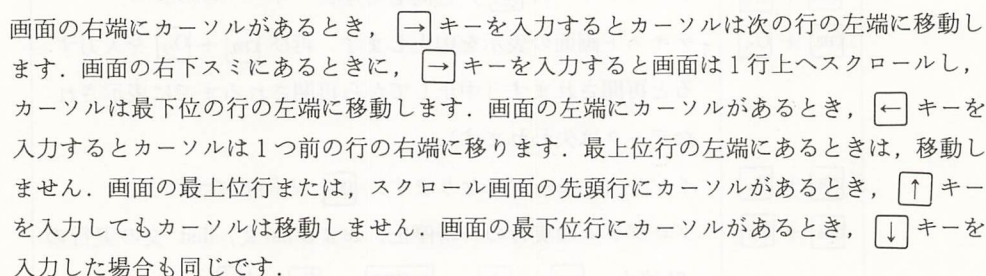 画面の右端にカーソルがあるとき，→キーを入力するとカーソルは次の行の左端に移動し
ます．画面の右下スミにあるときに，→キーを入力すると画面は1行上へスクロールし，
カーソルは最下位の行の左端に移動します．画面の左端にカーソルがあるとき，←キーを
入力するとカーソルは1つ前の行の右端に移ります．最上位行の左端にあるときは，移動し
ません．画面の最上位行または，スクロール画面の先頭行にカーソルがあるとき，↑キー
を入力してもカーソルは移動しません．画面の最下位行にカーソルがあるとき，↓キーを
入力した場合も同じです．